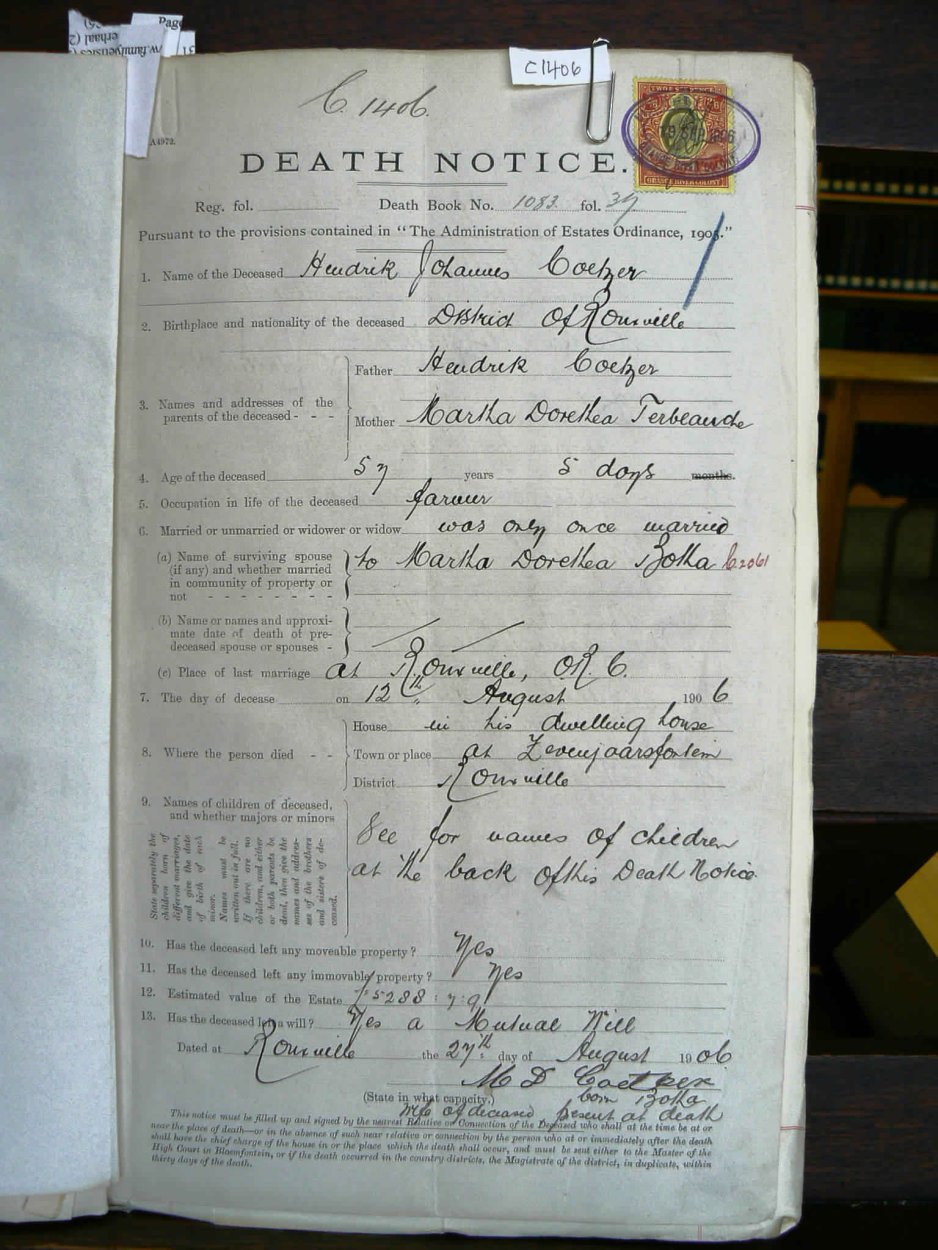 Page
C1406
C. 1406.
A4972.
DEATH NOTICE.
ORANGE RIVER COLONY
Reg. fol. Death Book No. 1083 fol. 37
Pursuant to the provisions contained in "The Administration of Estates Ordinance, 1905."
1. Name of the Deceased Hendrik Johannes Coetzer
2. Birthplace and nationality of the deceased District Of Rouxville
Father Hendrik Coetzer
3. Names and addresses of the parents of the deceased - - -
Mother Martha Dorethea Terblanche
4. Age of the deceased 57 years 5 days months.
5. Occupation in life of the deceased farmer
6. Married or unmarried or widower or widow was only once married
(a) Name of surviving spouse (if any) and whether married in community of property or not - - - - - - - to Martha Dorethea Botha C2061
(b) Name or names and approximate date of death of pre-deceased spouse or spouses -
(c) Place of last marriage at Rouxville, O.R.C.
7. The day of decease on 12th August 1906
House in his dwelling house
8. Where the person died - - Town or place at Zevenjaarsfontein
District Rouxville
9. Names of children of deceased, and whether majors or minors
State separately the children born of different marriages, and give the date of birth of each minor. Names must be written out in full. If there are no children, and either or both parents be dead, then give the names and addresses of the brothers and sisters of deceased.
See for names of children
at the back of this Death Notice.
10. Has the deceased left any moveable property? Yes
11. Has the deceased left any immovable property? Yes
12. Estimated value of the Estate £5288:7:9
13. Has the deceased left a will? Yes a Mutual Will
Dated at Rouxville the 27th day of August 1906
M D Coetzer
(State in what capacity.) born Botha
Wife of deceased present at death
This notice must be filled up and signed by the nearest Relative or Connection of the Deceased who shall at the time be at or
near the place of death—or in the absence of such near relative or connection by the person who at or immediately after the death
shall have the chief charge of the house in or the place which the death shall occur, and must be sent either to the Master of the
High Court in Bloemfontein, or if the death occurred in the country districts, the Magistrate of the district, in duplicate, within
thirty days of the death.